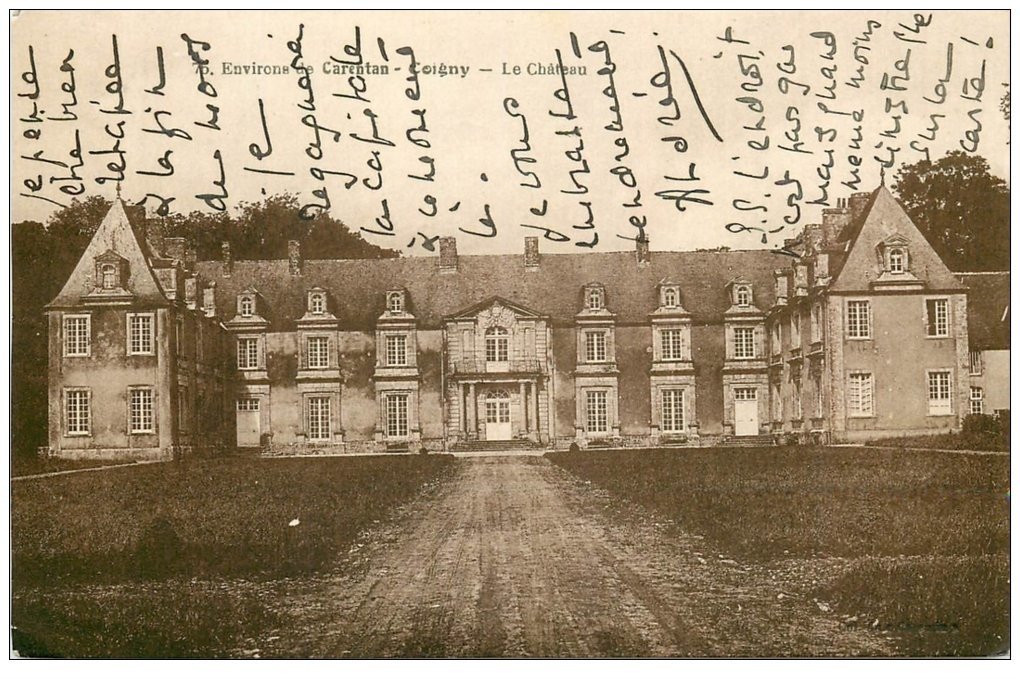 75. Environs de Carentan - Coigny — Le Château
Je pense
être bien
retapée
à la fin
du mois
je
regagnerai
la capitale
à ce moment
là.
Je vous
embrasse
tendrement,
Andrée.
P.S. L'endroit
est pas gai
mais quand
même moins
sinistre que
sur la
carte !